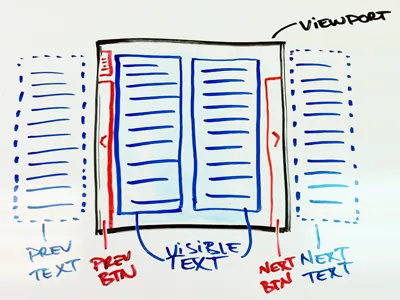 VIEWPORT
PREV
TEXT
PREV
BTN
VISIBLE
TEXT
NEXT
BTN
NEXT
TEXT